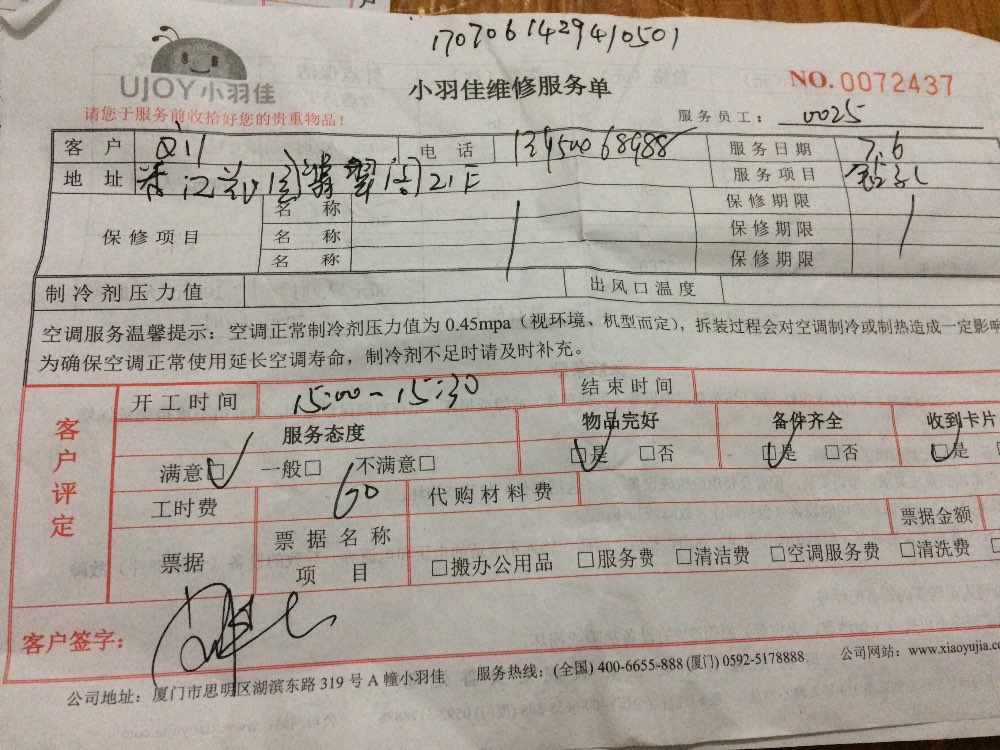 1707061429410501
UJOY小羽佳
小羽佳维修服务单
NO.0072437
请您于服务前收拾好您的贵重物品!
服务员工: 0025
客户 电话 服务日期 7.6
地址 21F 服务项目 钻孔
保修项目 名称 保修期限
名称 保修期限
名称 保修期限
制冷剂压力值 出风口温度
空调服务温馨提示:空调正常制冷剂压力值为0.45mpa(视环境、机型而定),拆装过程会对空调制冷或制热造成一定影响
为确保空调正常使用延长空调寿命,制冷剂不足时请及时补充。
客户评定
开工时间 15:00-15:30 结束时间
服务态度 物品完好 备件齐全 收到卡片
满意□ 一般□ 不满意□ □是 □否 □是 □否 □是
工时费 60 代购材料费
票据 票据名称 票据金额
项目 □搬办公用品 □服务费 □清洁费 □空调服务费 □清洗费
客户签字:
公司地址:厦门市思明区湖滨东路319号A幢小羽佳 服务热线:(全国)400-6655-888(厦门)0592-5178888 公司网站:www.xiaoyujia.co